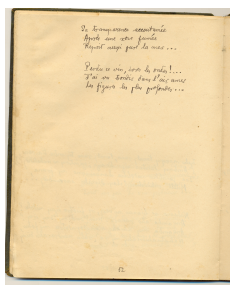 Sa transparence accoutumée
Après une rose fumée
Reprit aussi pure la mer...
Perdu ce vin, ivres les ondes!...
J'ai vu bondir dans l'air amer
Les figures les plus profondes...